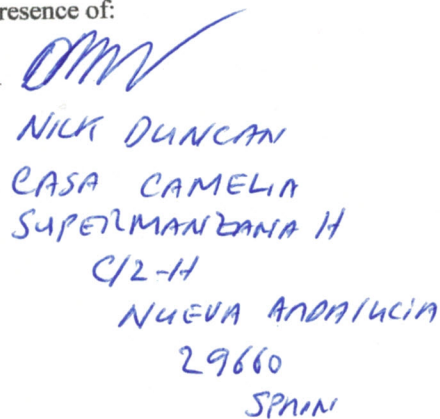 resence of:
NICK DUNCAN
CASA CAMELIA
SUPERMANZANA H
C/2-H
NUEVA ANDALUCIA
29660
SPAIN